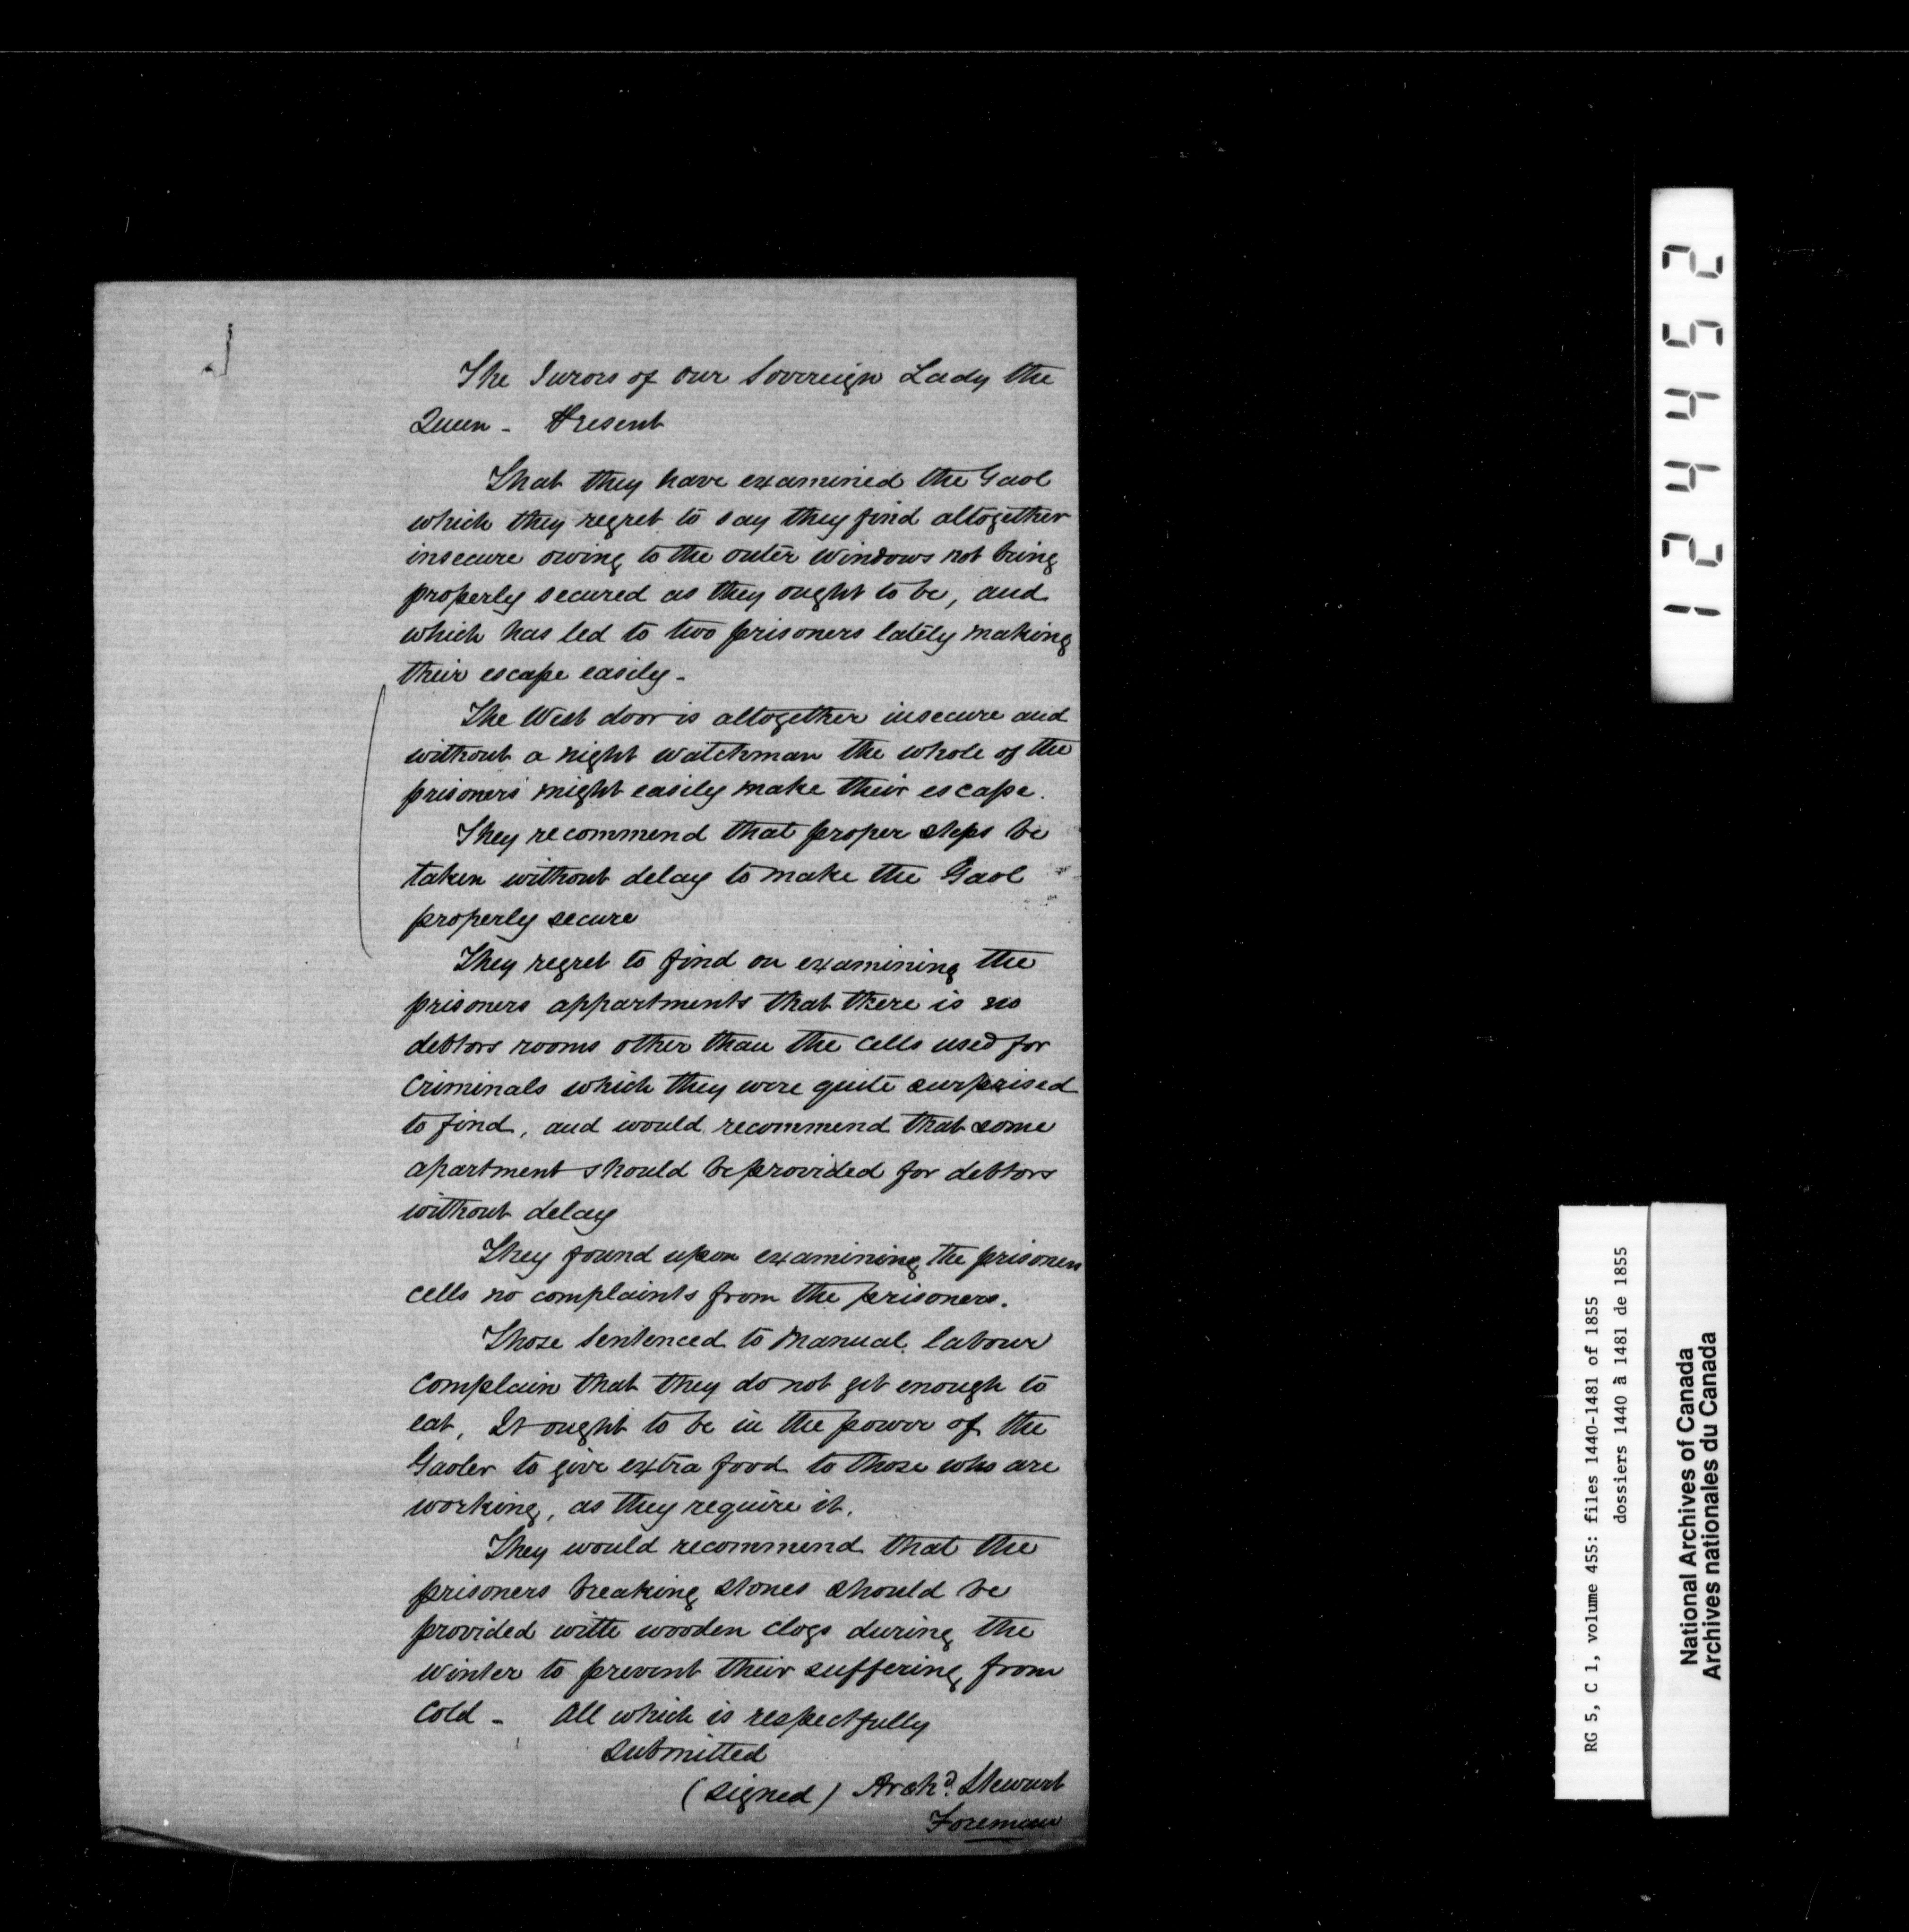 The Jurors of our Sovereign Lady the
Queen - Present
That they have examined the Gaol
which they regret to say they find altogether
insecure owing to the outer windows not being
properly secured as they ought to be, and
which has led to two prisoners lately making
their escape easily -
The West door is altogether insecure and
without a night watchman the whole of the
prisoners might easily make their escape.
They recommend that proper steps be
taken without delay to make the Gaol
properly secure
They regret to find on examining the
prisoners appartments that there is no
debtors rooms other than the cells used for
Criminals which they were quite surprised
to find, and would recommend that some
apartment should be provided for debtors
without delay
They found upon examining the prisoners
cells no complaints from the prisoners.
Those Sentenced to Manual labour
Complain that they do not get enough to
eat, It ought to be in the power of the
Gaoler to give extra food to those who are
working, as they require it.
They would recommend that the
prisoners breaking stones should be
provided with wooden clogs during the
winter to prevent their suffering from
Cold - All which is respectfully
submitted
(signed) Archd. Stewart
Foreman
124452
RG 5, C 1, volume 455: files 1440-1481 of 1855
dossiers 1440 à 1481 de 1855
National Archives of Canada
Archives nationales du Canada